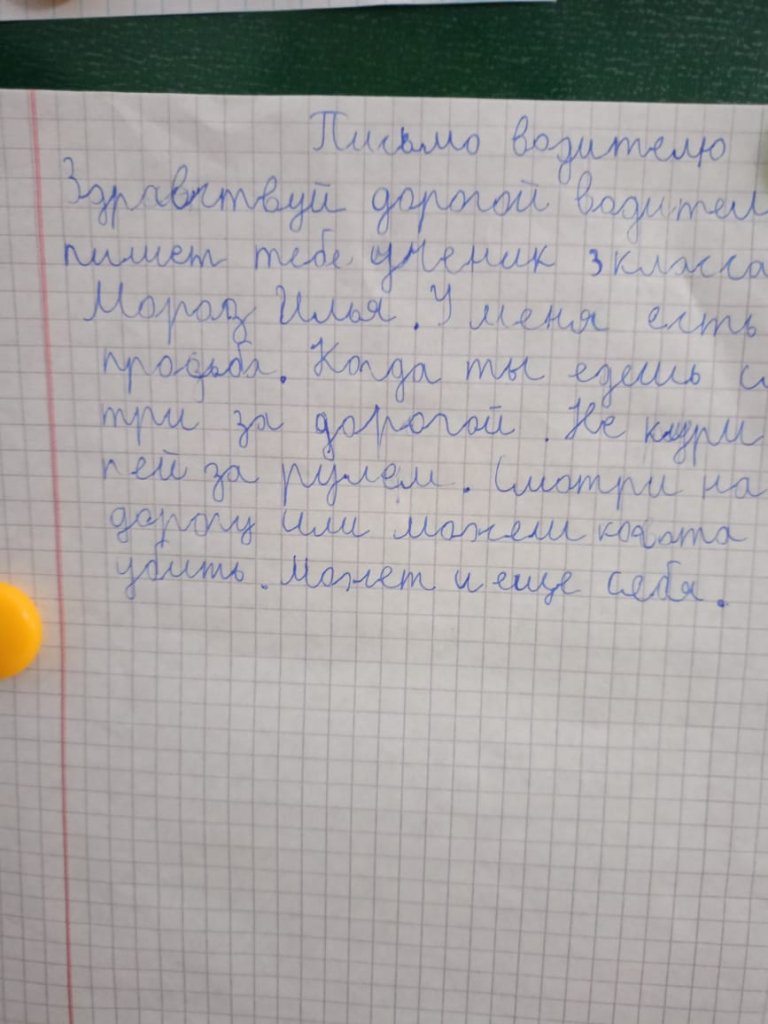 Письмо водителю
Здравствуй дорогой водител
пишет тебе ученик 3 класса
Мороз Илья. У меня есть
прозьба. Когда ты едешь с
три за дорогой. Не кури
пей за рулем. Смотри на
дорогу или можеш когота
убить. Может и еще себя.